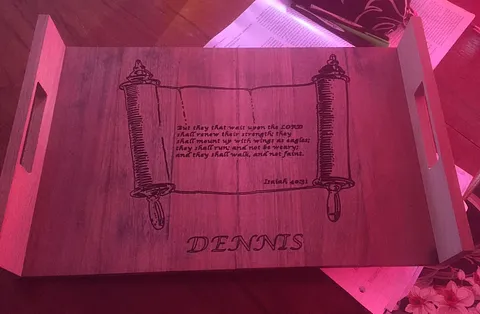 But they that wait upon the LORD
shall renew their strength; they
shall mount up with wings as eagles;
they shall run, and not be weary;
and they shall walk, and not faint.
Isaiah 40:31
DENNIS